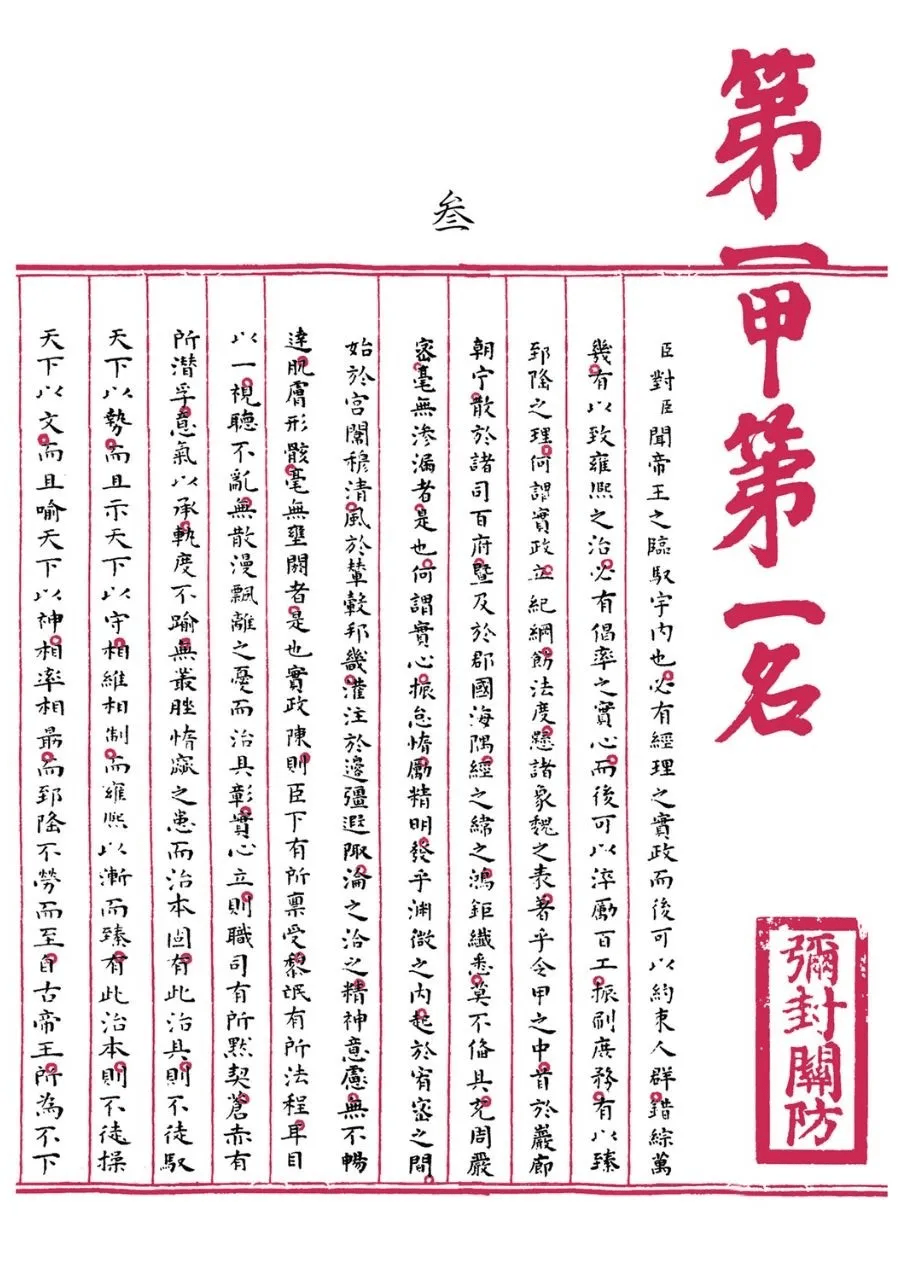 第一甲第一名
彌封關防
叁
臣對臣聞帝王之臨馭宇内也必有經理之實政而後可以約束人群錯綜萬
幾有以致雍熙之治必有倡率之實心而後可以淬勵百工振刷庶務有以臻
郅隆之理何謂實政立紀綱飭法度懸諸象魏之表著乎令甲之中首於巖廊
朝宁散於諸司百府暨及於郡國海隅經之緯之鴻鉅纖悉莫不偹具充周嚴
密毫無滲漏者是也何謂實心振怠惰勵精明發乎淵微之内起於宥密之間
始於宮闈穆清風於輦轂邦畿灌注於邊疆遐陬淪之洽之精神意慮無不暢
達肌膚形骸毫無壅閼者是也實政陳則臣下有所稟受黎氓有所法程耳目
以一視聽不亂無散漫飄離之憂而治具彰實心立則職司有所默契蒼赤有
所潛孚意氣以承軌度不踰無叢脞惰窳之患而治本固有此治具則不徒馭
天下以勢而且示天下以守相維相制而雍熙以漸而臻有此治本則不徒操
天下以文而且喻天下以神相率相朂而郅隆不勞而至自古帝王所為不下